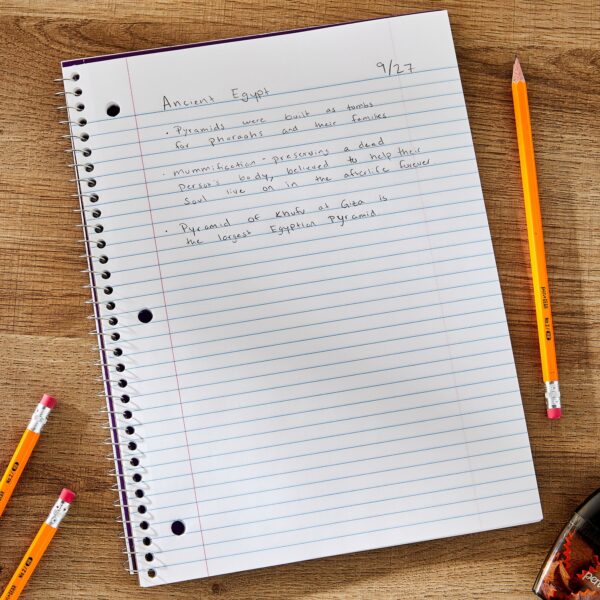 9/27
Ancient Egypt
• Pyramids were built as tombs
for pharaohs and their families.
• Mummification - preserving a dead
person's body, believed to help their
soul live on in the afterlife forever.
• Pyramid of Khufu at Giza is
the largest Egyptian pyramid